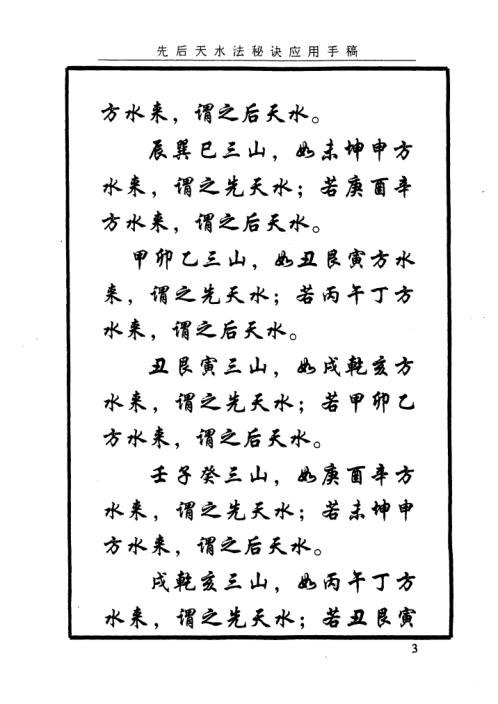 先后天水法秘诀应用手稿
方水来，谓之后天水。
辰巽巳三山，如未坤申方
水来，谓之先天水；若庚酉辛
方水来，谓之后天水。
甲卯乙三山，如丑艮寅方水
来，谓之先天水；若丙午丁方
水来，谓之后天水。
丑艮寅三山，如戌乾亥方
水来，谓之先天水；若甲卯乙
方水来，谓之后天水。
壬子癸三山，如庚酉辛方
水来，谓之先天水；若未坤申
方水来，谓之后天水。
戌乾亥三山，如丙午丁方
水来，谓之先天水；若丑艮寅
3